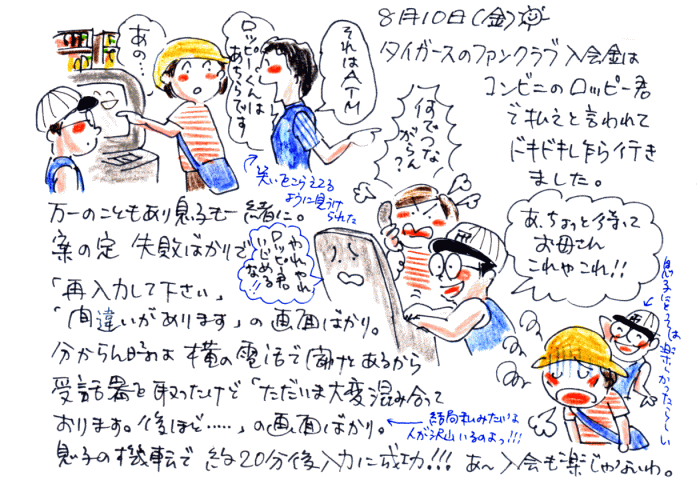 8月10日(金)
タイガースのファンクラブ入会金は
コンビニのロッピー君
で払えと言われて
ドキドキし乍ら行き
ました。
あの?
ロッピーくんは
あちらです
それはATM
笑いをこらえてる
ように見うけ
られた
万一のこともあり息子も一緒に。
案の定 失敗ばかりで
「再入力して下さい」
「間違いがあります」の画面ばかり。
分からん時は横の電話で聞けとあるから
受話器を取ったけど「ただいま大変混み合って
おります。後ほど……」の画面ばかり。
結局私みたいな
人が沢山いるのよっ!!!
息子の機転で 約20分後入力に成功!!! あ〜入会も楽じゃないわ。
何でつな
がらん?
やれやれ
ロッピー君
いじめる
なよ
あ、ちょっと待って
お母さん
これやこれ!!
息子にとっては
楽しかったらしい